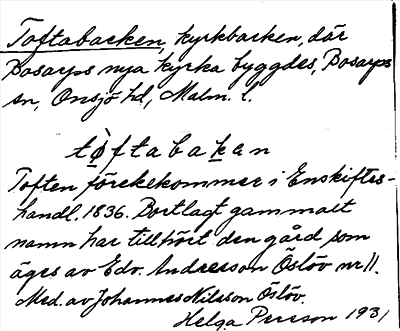 Toftabacken, kyrkbacken, där
Bosarps nya kyrka byggdes, Bosarps
sn, Onsjö hd, Malm. l.
tòftabaken
Toften förekekommer i Enskiftes-
handl. 1836. Bortlagt gammalt
namn har tillhört den gård som
äges av Edv. Andersson Öslöv nr 11.
Med. av Johannes Nilsson Öslöv.
Helga Persson 1931